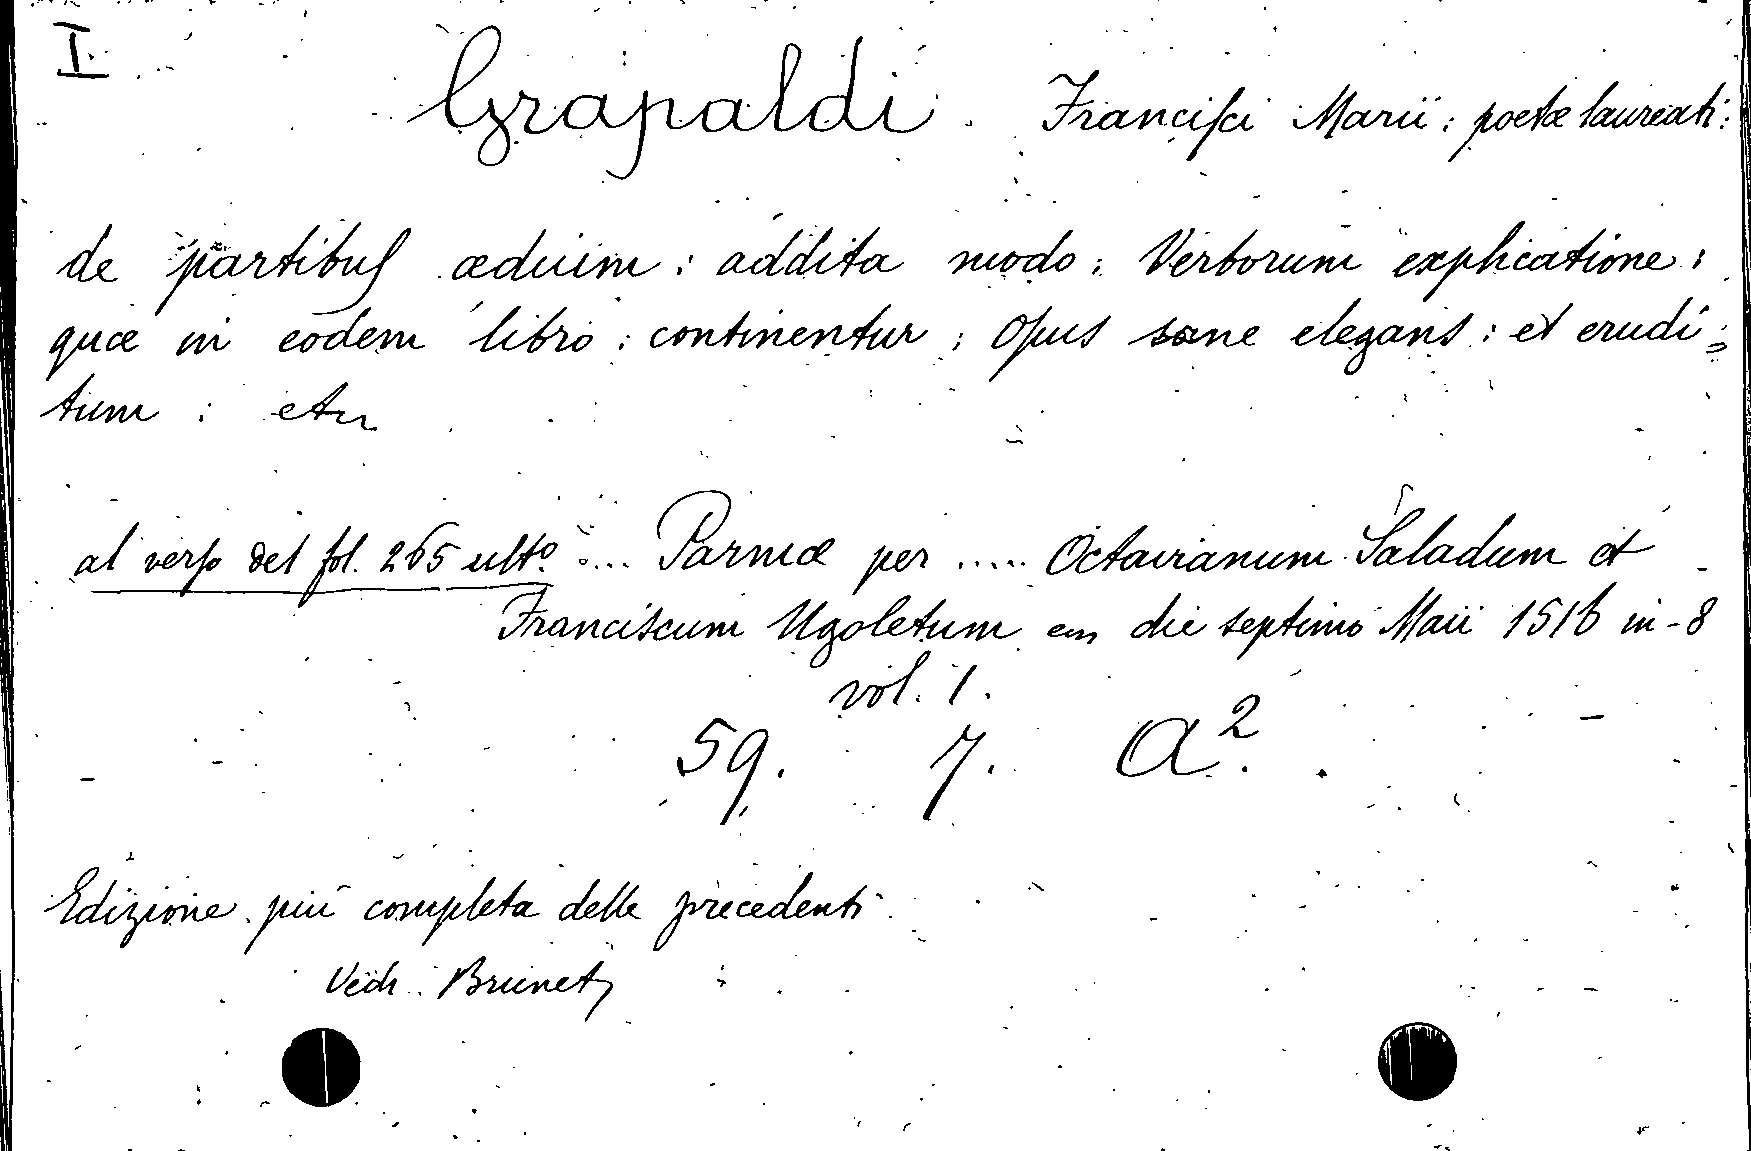 I.
Grapaldi Francisci Marii: poetæ laureati:
de partibus ædium: addita modo: Verborum explicatione:
quæ in eodem libro: continentur: Opus sane elegans: et erudi=
tum: etc
al verso del fol. 265 ultº .... Parmæ per ..... Octavianum Saladum et
Franciscum Ugoletum die septimo Maii 1516 in-8
vol. 1.
59. 7. A².
Edizione più completa delle precedenti
Vedi Brunet